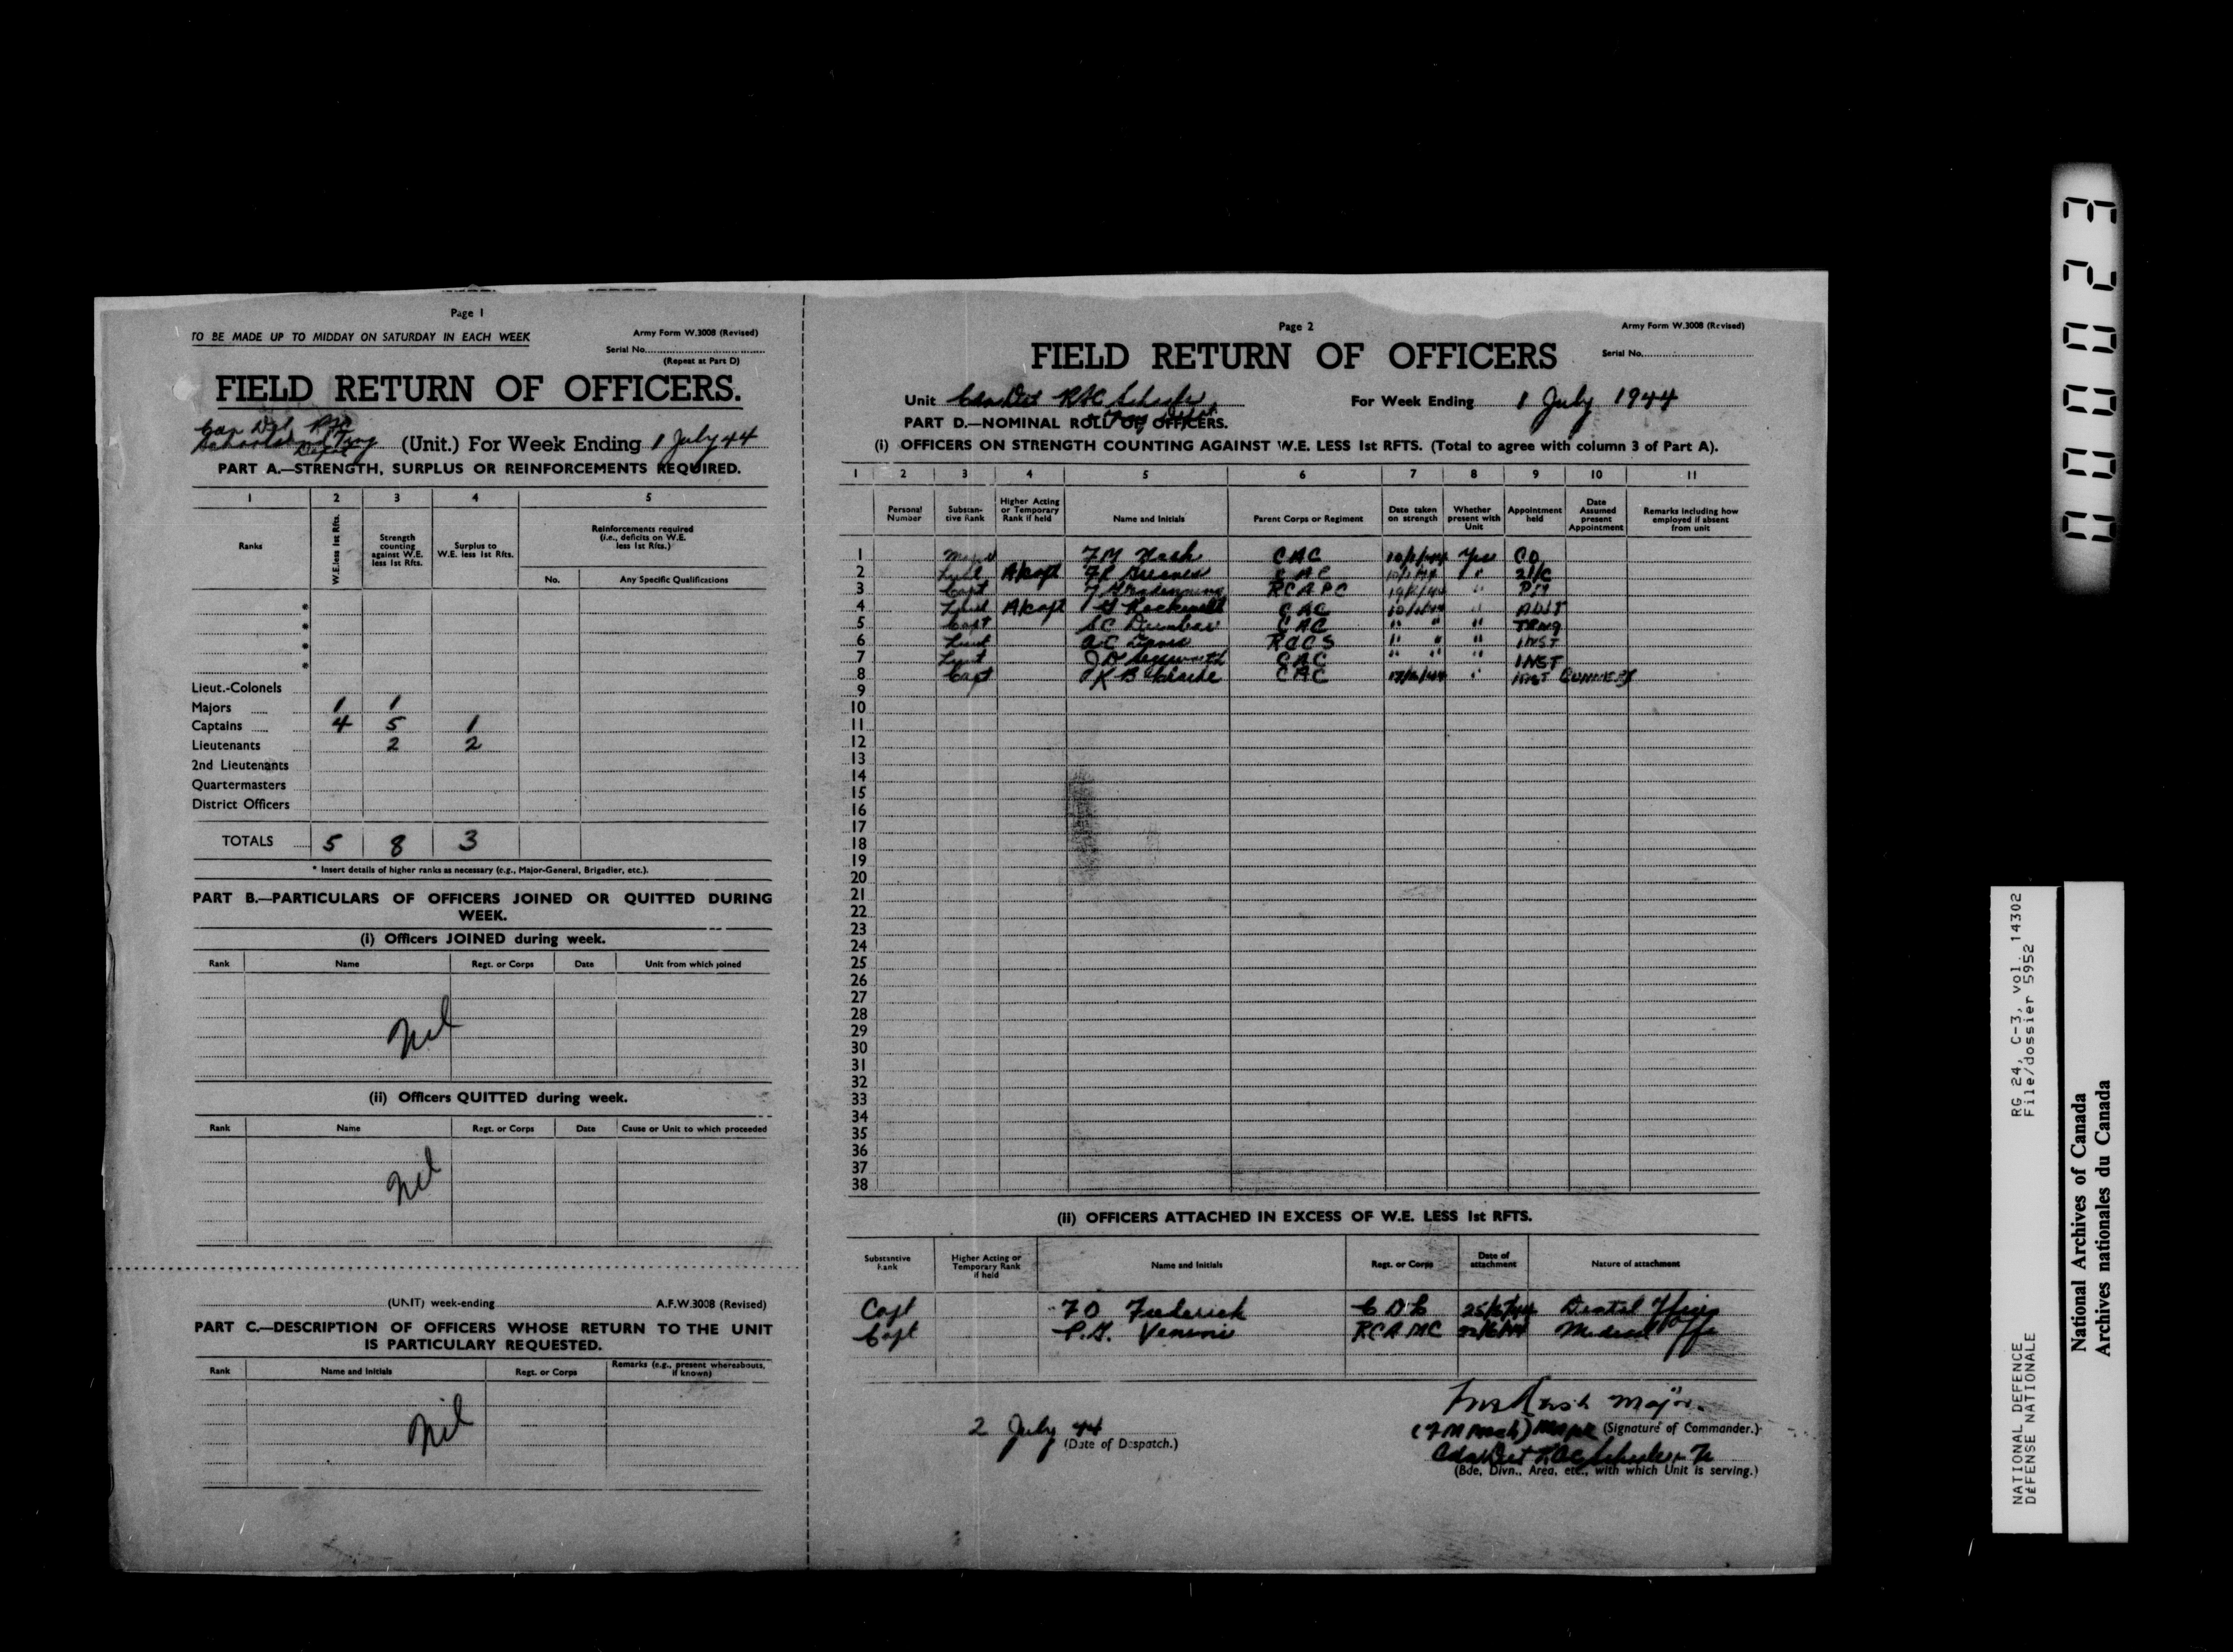 Page 1
TO BE MADE UP TO MIDDAY ON SATURDAY IN EACH WEEK
Army Form W.3008 (Revised)
Serial No.
(Repeat at Part D)
FIELD RETURN OF OFFICERS.
Can Det RAC
Schools and Trng
Depot
(Unit.) For Week Ending 1 July 44
PART A.—STRENGTH, SURPLUS OR REINFORCEMENTS REQUIRED.
1 2 3 4 5
Ranks
W.E. less 1st Rfts.
Strength counting against W.E. less 1st Rfts.
Surplus to W.E. less 1st Rfts.
Reinforcements required (i.e., deficits on W.E. less 1st Rfts.)
No. Any Specific Qualifications
Lieut.-Colonels
Majors 1 1
Captains 4 5 1
Lieutenants 2 2
2nd Lieutenants
Quartermasters
District Officers
TOTALS 5 8 3
* Insert details of higher ranks as necessary (e.g., Major-General, Brigadier, etc.).
PART B.—PARTICULARS OF OFFICERS JOINED OR QUITTED DURING
WEEK.
(i) Officers JOINED during week.
Rank Name Regt. or Corps Date Unit from which joined
Nil
(ii) Officers QUITTED during week.
Rank Name Regt. or Corps Date Cause or Unit to which proceeded
Nil
(UNIT) week-ending A.F.W.3008 (Revised)
PART C.—DESCRIPTION OF OFFICERS WHOSE RETURN TO THE UNIT
IS PARTICULARY REQUESTED.
Rank Name and Initials Regt. or Corps Remarks (e.g., present whereabouts, if known)
Nil
Page 2
Army Form W.3008 (Revised)
FIELD RETURN OF OFFICERS
Serial No.
Unit Can Det RAC Schools
For Week Ending 1 July 1944
PART D.—NOMINAL ROLL OF OFFICERS.
(i) OFFICERS ON STRENGTH COUNTING AGAINST W.E. LESS 1st RFTS. (Total to agree with column 3 of Part A).
1 2 3 4 5 6 7 8 9 10 11
Personal Number
Substantive Rank
Higher Acting or Temporary Rank if held
Name and Initials
Parent Corps or Regiment
Date taken on strength
Whether present with Unit
Appointment held
Date Assumed present Appointment
Remarks including how employed if absent from unit
1 Major F M Nash CAC Yes CO
2 Lieut A/Capt CAC " 2I/C
3 Capt RCAPC " PM
4 Lieut A/Capt G Rockwell CAC " ADJT
5 Capt SC Dunbar CAC " " " TRNG
6 Lieut RCCS " " " INST
7 Lieut CAC " " " INST
8 Capt CAC " INST GUNNERY
9
10
11
12
13
14
15
16
17
18
19
20
21
22
23
24
25
26
27
28
29
30
31
32
33
34
35
36
37
38
(ii) OFFICERS ATTACHED IN EXCESS OF W.E. LESS 1st RFTS.
Substantive Rank
Higher Acting or Temporary Rank if held
Name and Initials
Regt. or Corps
Date of attachment
Nature of attachment
Capt F O Frederick CDC Dental Officer
Capt RCAMC Medical
Major.
2 July 44
(Date of Despatch.)
(F M Nash) Major (Signature of Commander.)
Can Det RAC Schools
(Bde, Divn., Area, etc., with which Unit is serving.)
000023
NATIONAL DEFENCE RG 24, C-3, vol. 14302
DÉFENSE NATIONALE File/dossier 5952
National Archives of Canada
Archives nationales du Canada